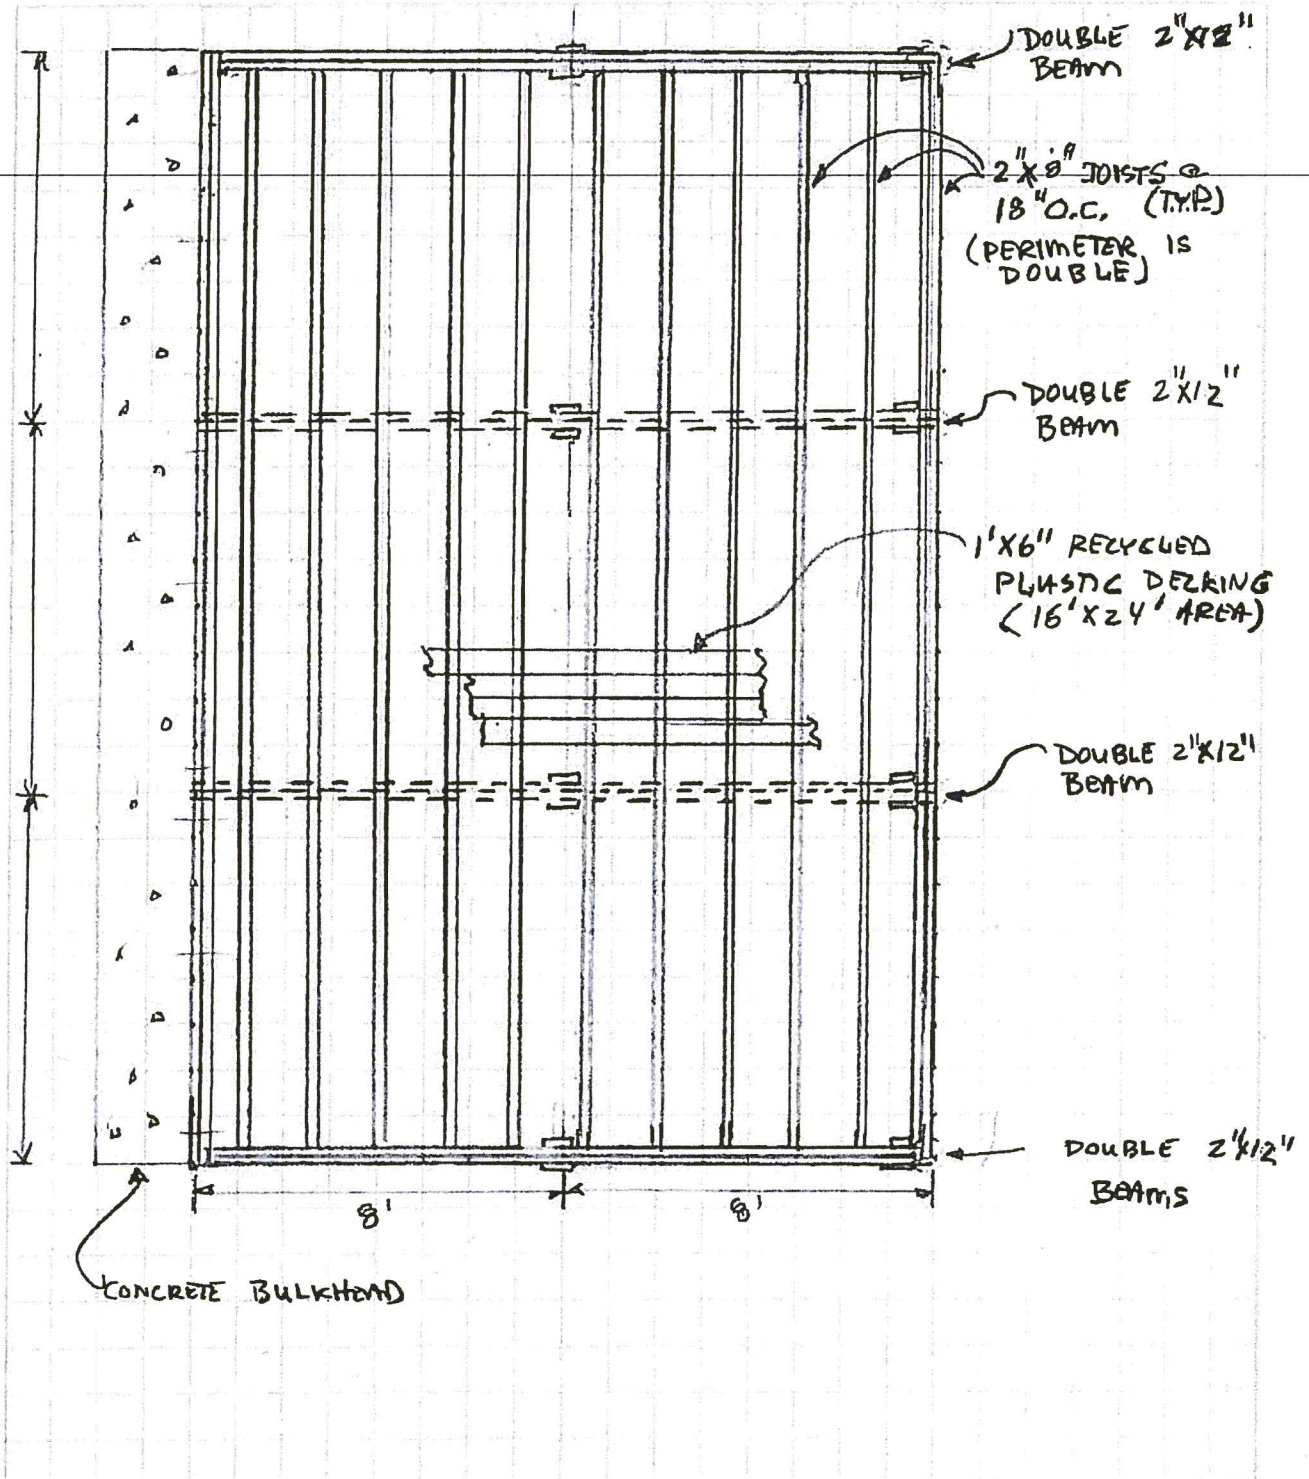 DOUBLE 2"X12"
BEAM
2"X8" JOISTS @
18" O.C. (TYP.)
(PERIMETER IS
DOUBLE)
DOUBLE 2"X12"
BEAM
1'X6" RECYCLED
PLASTIC DECKING
(16'X24' AREA)
DOUBLE 2"X12"
BEAM
DOUBLE 2"X12"
BEAMS
8' 8'
CONCRETE BULKHEAD